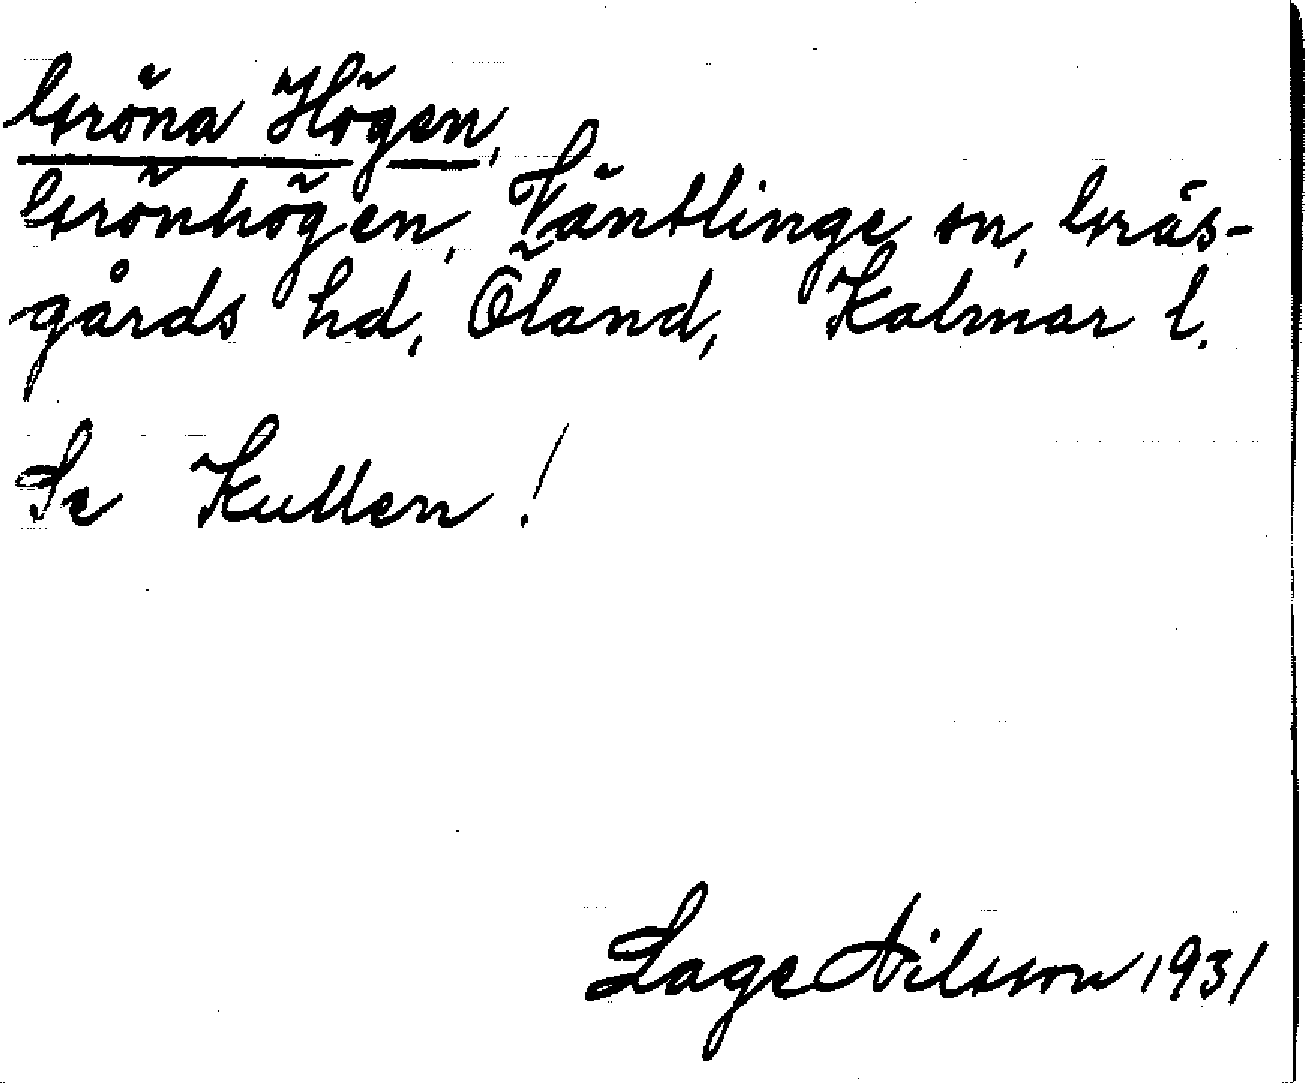 Gröna Högen,
Grönhögen, Väntlinge sn, Gräs-
gårds hd, Öland, Kalmar l.
Se Kullen!
Lage Nilsson 1931